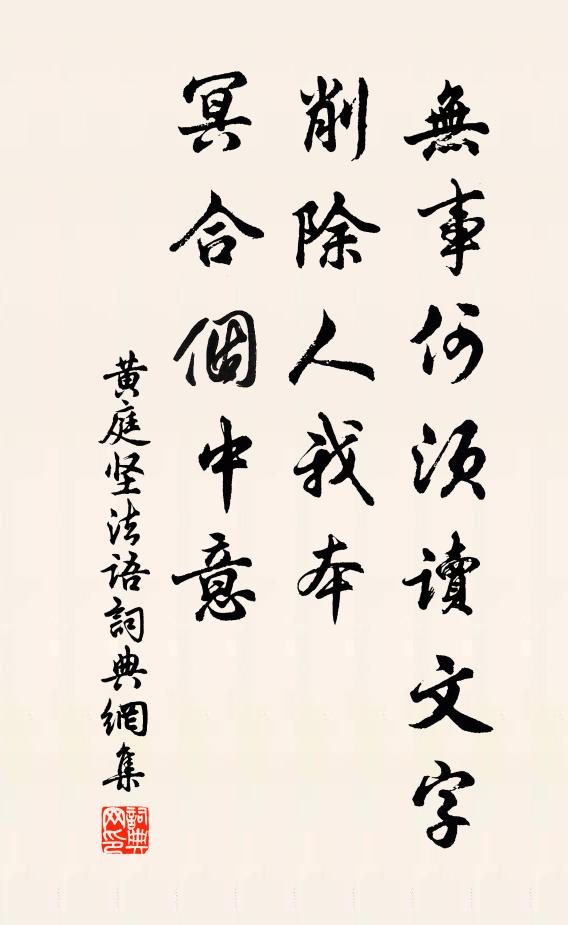 無事何須讀文字
削除人我本
冥合個中意
黄庭坚法語詞典網集
詞典网印